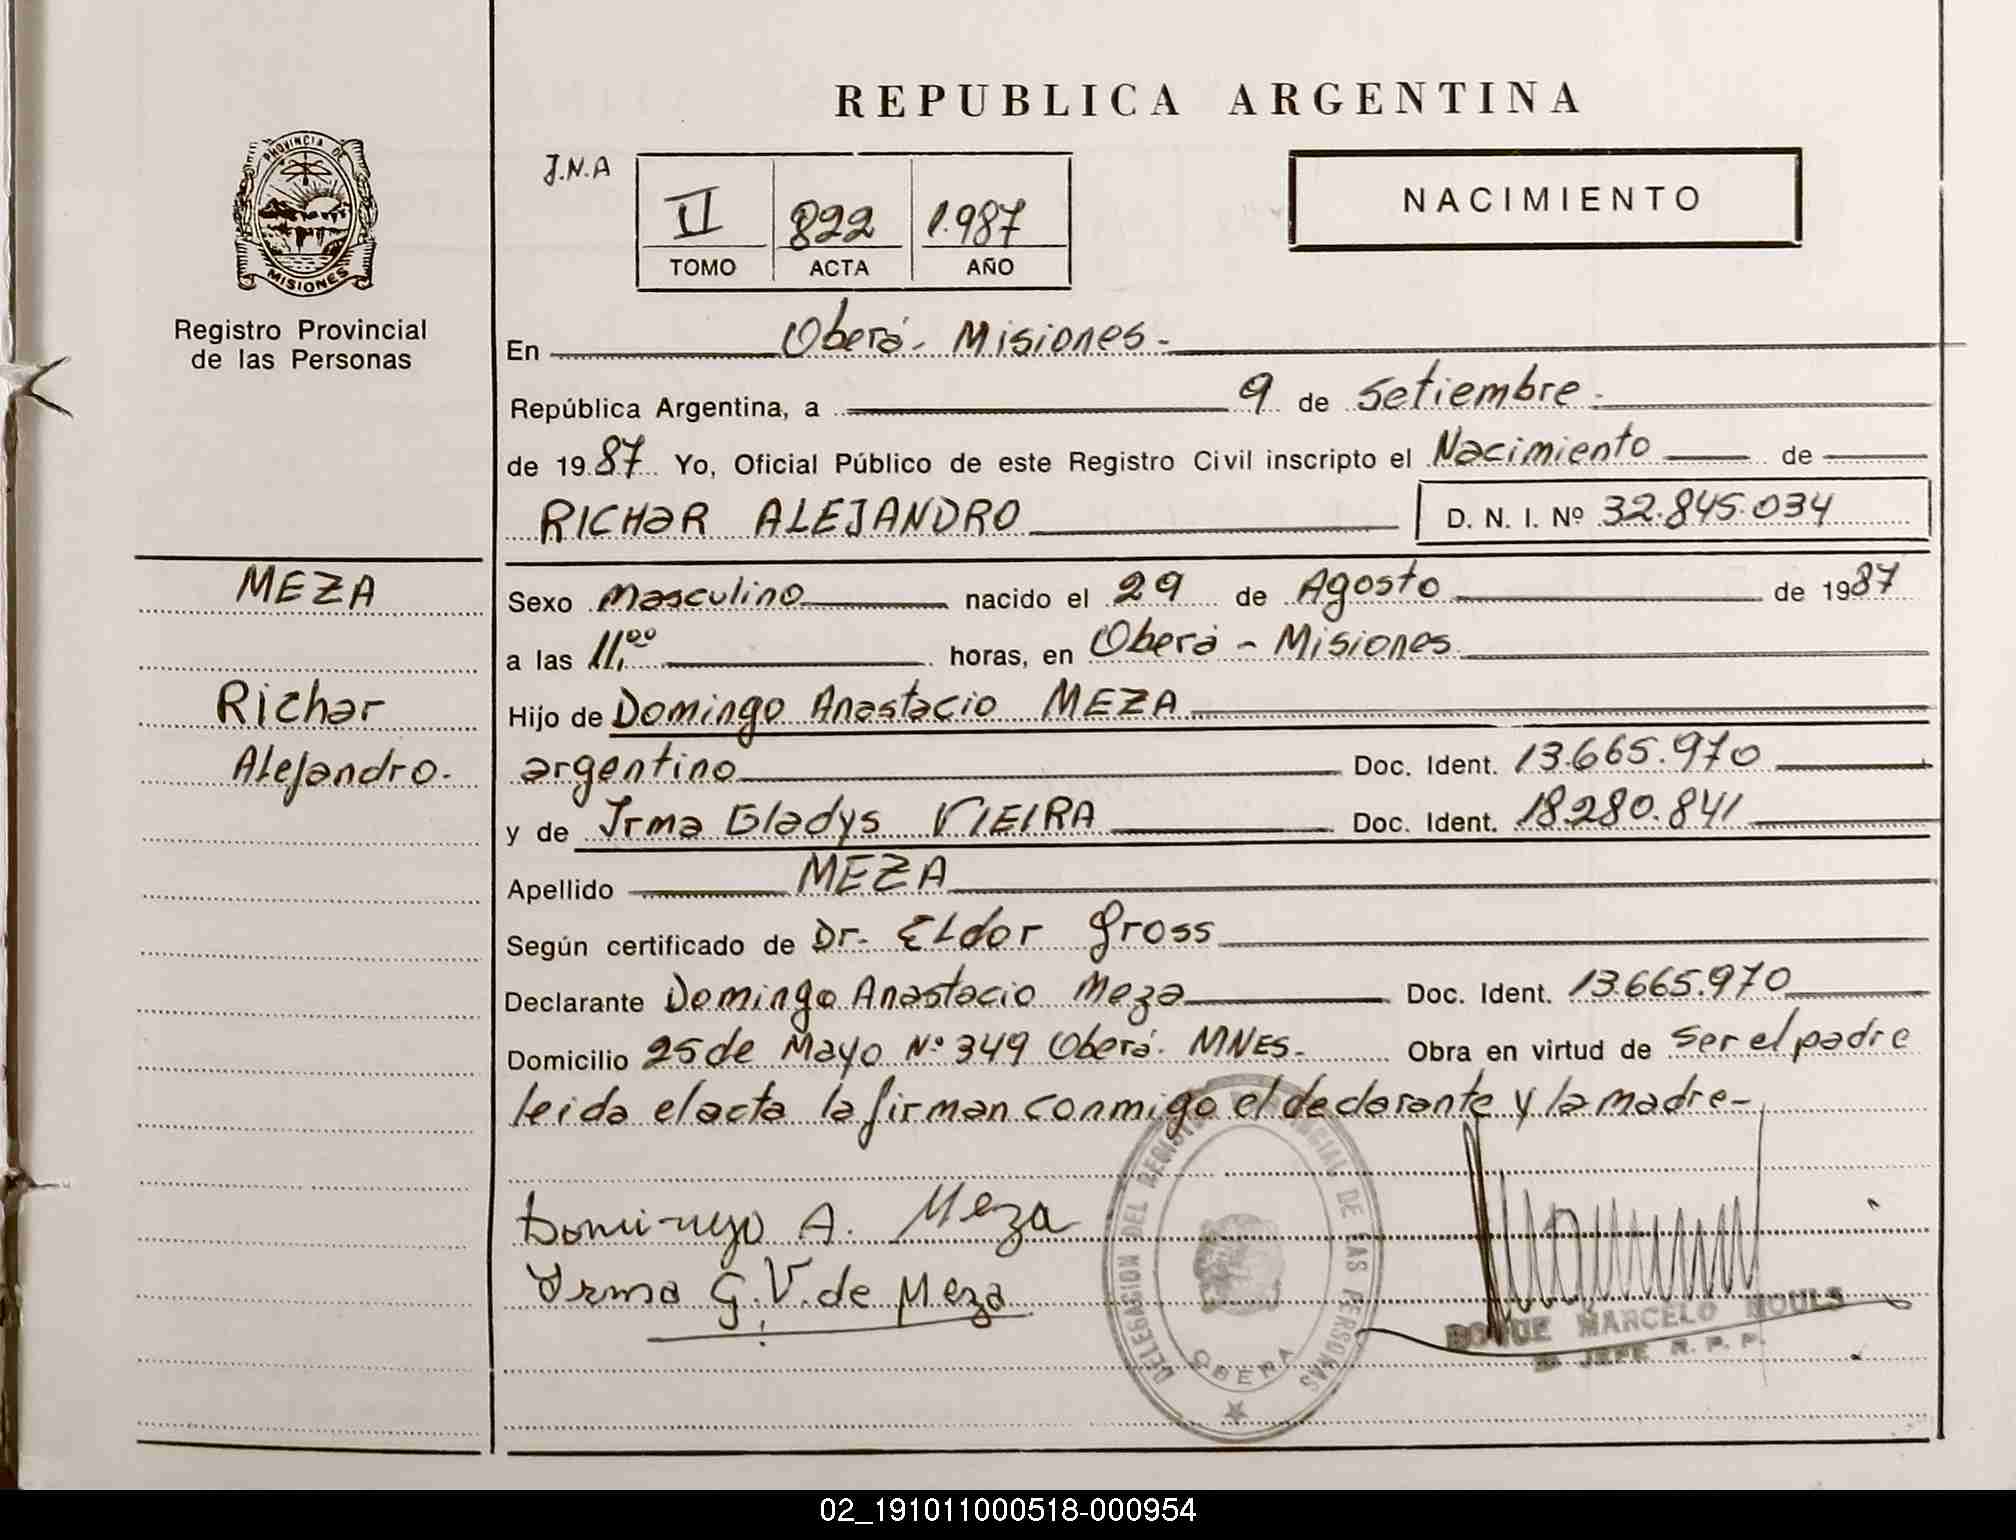 REPUBLICA ARGENTINA
PROVINCIA DE
MISIONES
Registro Provincial
de las Personas
J.N.A
II 822 1.987
TOMO ACTA AÑO
NACIMIENTO
En Oberá - Misiones -
República Argentina, a 9 de Setiembre -
de 1987 Yo, Oficial Público de este Registro Civil inscripto el Nacimiento de
RICHAR ALEJANDRO D. N. I. Nº 32.845.034
MEZA
Richar
Alejandro.
Sexo masculino nacido el 29 de Agosto de 1987
a las 11,00 horas, en Oberá - Misiones
Hijo de Domingo Anastacio MEZA
argentino Doc. Ident. 13.665.970
y de Irma Gladys VIEIRA Doc. Ident. 18.280.841
Apellido MEZA
Según certificado de Dr. Eldor Gross
Declarante Domingo Anastacio Meza Doc. Ident. 13.665.970
Domicilio 25 de Mayo Nº 349 Oberá. MNES. Obra en virtud de ser el padre
leida el acta la firman conmigo el declarante y la madre -
Domingo A. Meza
Irma G. V. de Meza
DELEGASION DEL REGISTRO PROVINCIAL DE LAS PERSONAS
OBERA
ROQUE MARCELO MOULS
JEFE R. P. P.
02_191011000518-000954